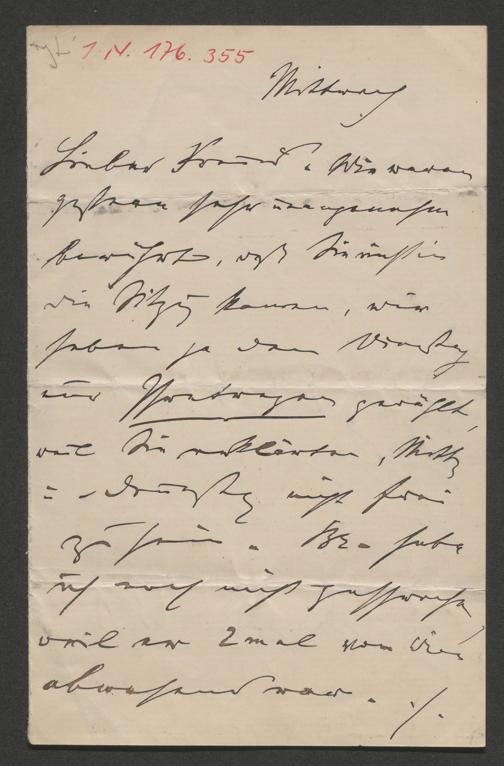 I. N. 176.355
Mittwoch
Lieber Freund! Wir waren
gestern sehr unangenehm
berührt, daß Sie nicht in
die Sitzg kamen, wir
haben ja den Dienstag
nur Ihretwegen gewählt,
weil Sie erklärten, Mittw
u. Donnerstag nicht frei
zu sein. habe
ich noch nicht gesprochen,
weil er 2mal von Wien
abwesend war. ./.